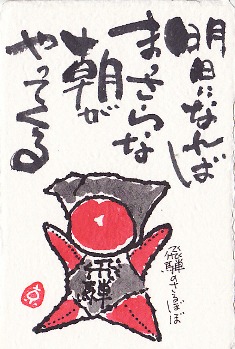 明日になれば
まっさらな
朝が
やってくる
飛騨
飛騨のさるぼぼ